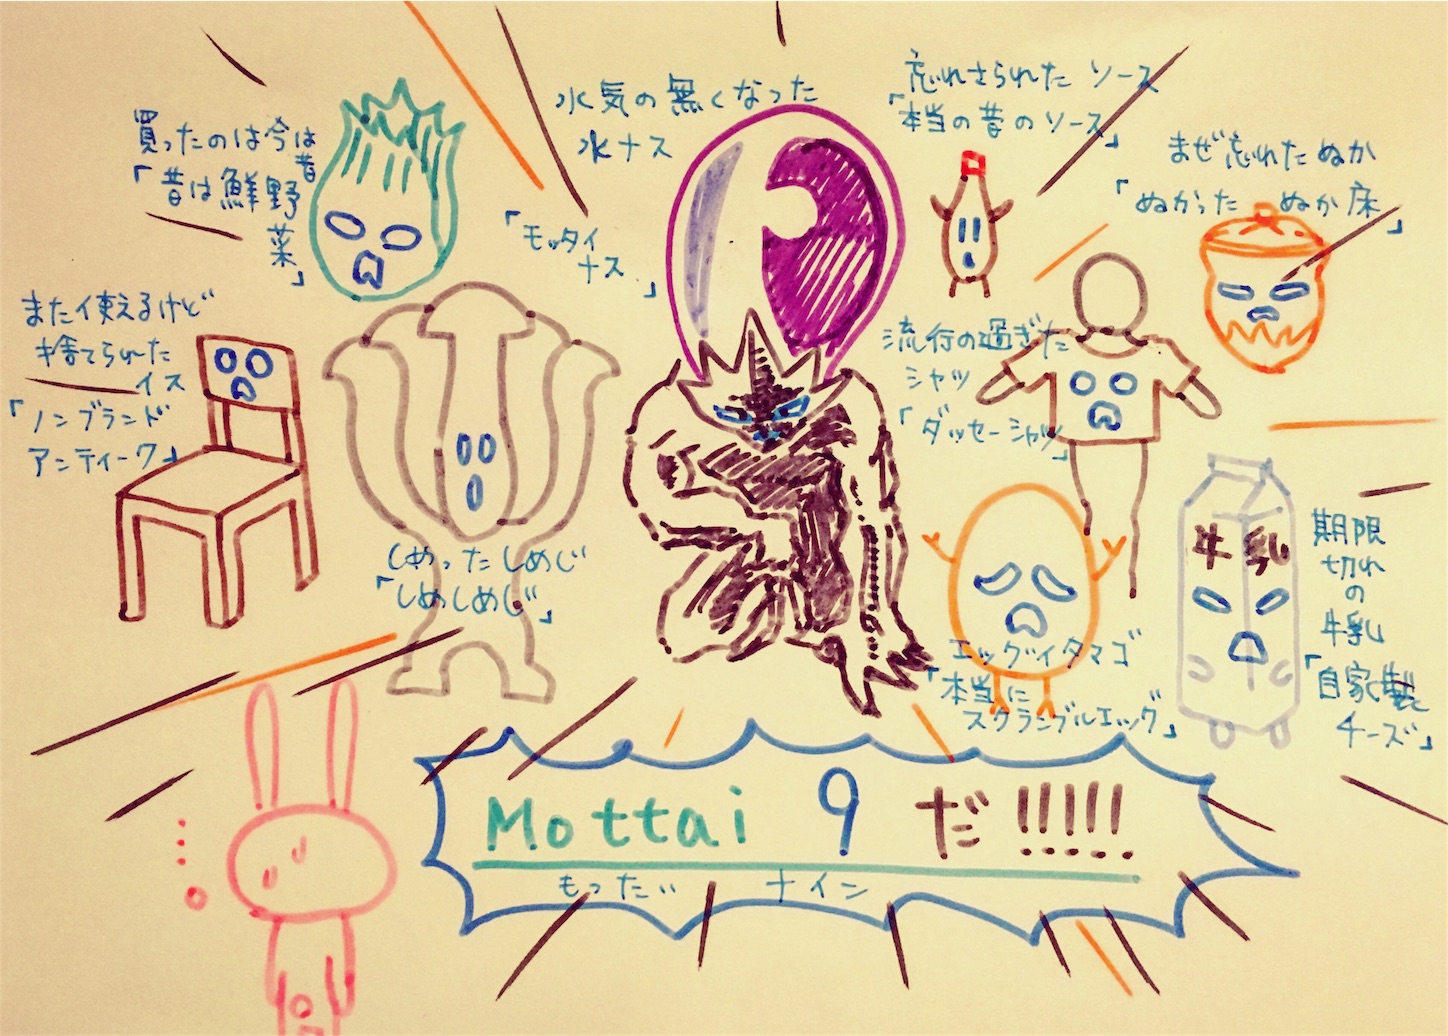 買ったのは今は
昔
「昔は鮮野
菜」
水気の無くなった
水ナス
「モッタイ
ナス
」
忘れさられた ソース
「本当の昔のソース」
まぜ忘れたぬか
「ぬかった ぬか床」
まだ使えるけど
捨てられた
イス
「ノンブランド
アンティーク」
流行の過ぎた
シャツ
「ダッセーシャツ」
しめったしめじ
「しめしめじ」
エッグイタマゴ
「本当に
スクランブルエッグ」
牛乳
期限
切れ
の
牛乳
「自家製
チーズ」
Mottai 9 だ !!!!!
もったい ナイン